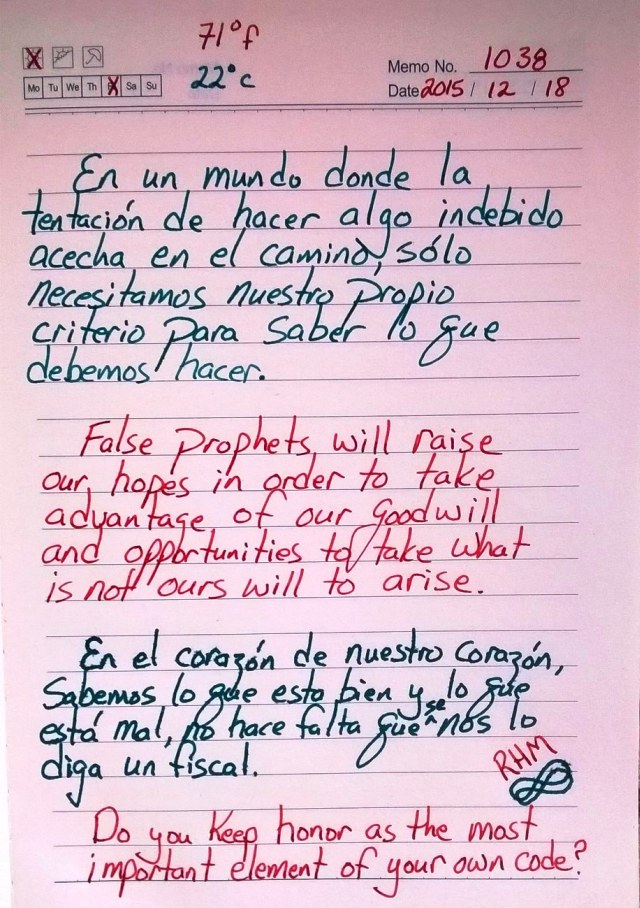 71°f
22°c
Memo No. 1038
Mo Tu We Th Sa Su
Date 2015 / 12 / 18
En un mundo donde la
tentación de hacer algo indebido
acecha en el camino, sólo
necesitamos nuestro propio
criterio para saber lo que
debemos hacer.
False Prophets will raise
our hopes in order to take
advantage of our goodwill
and opportunities to take what
is not ours will to arise.
En el corazón de nuestro corazón,
Sabemos lo que esta bien y lo que
está mal, no hace falta que se nos lo
diga un fiscal.
RHM
Do you Keep honor as the most
important element of your own code?